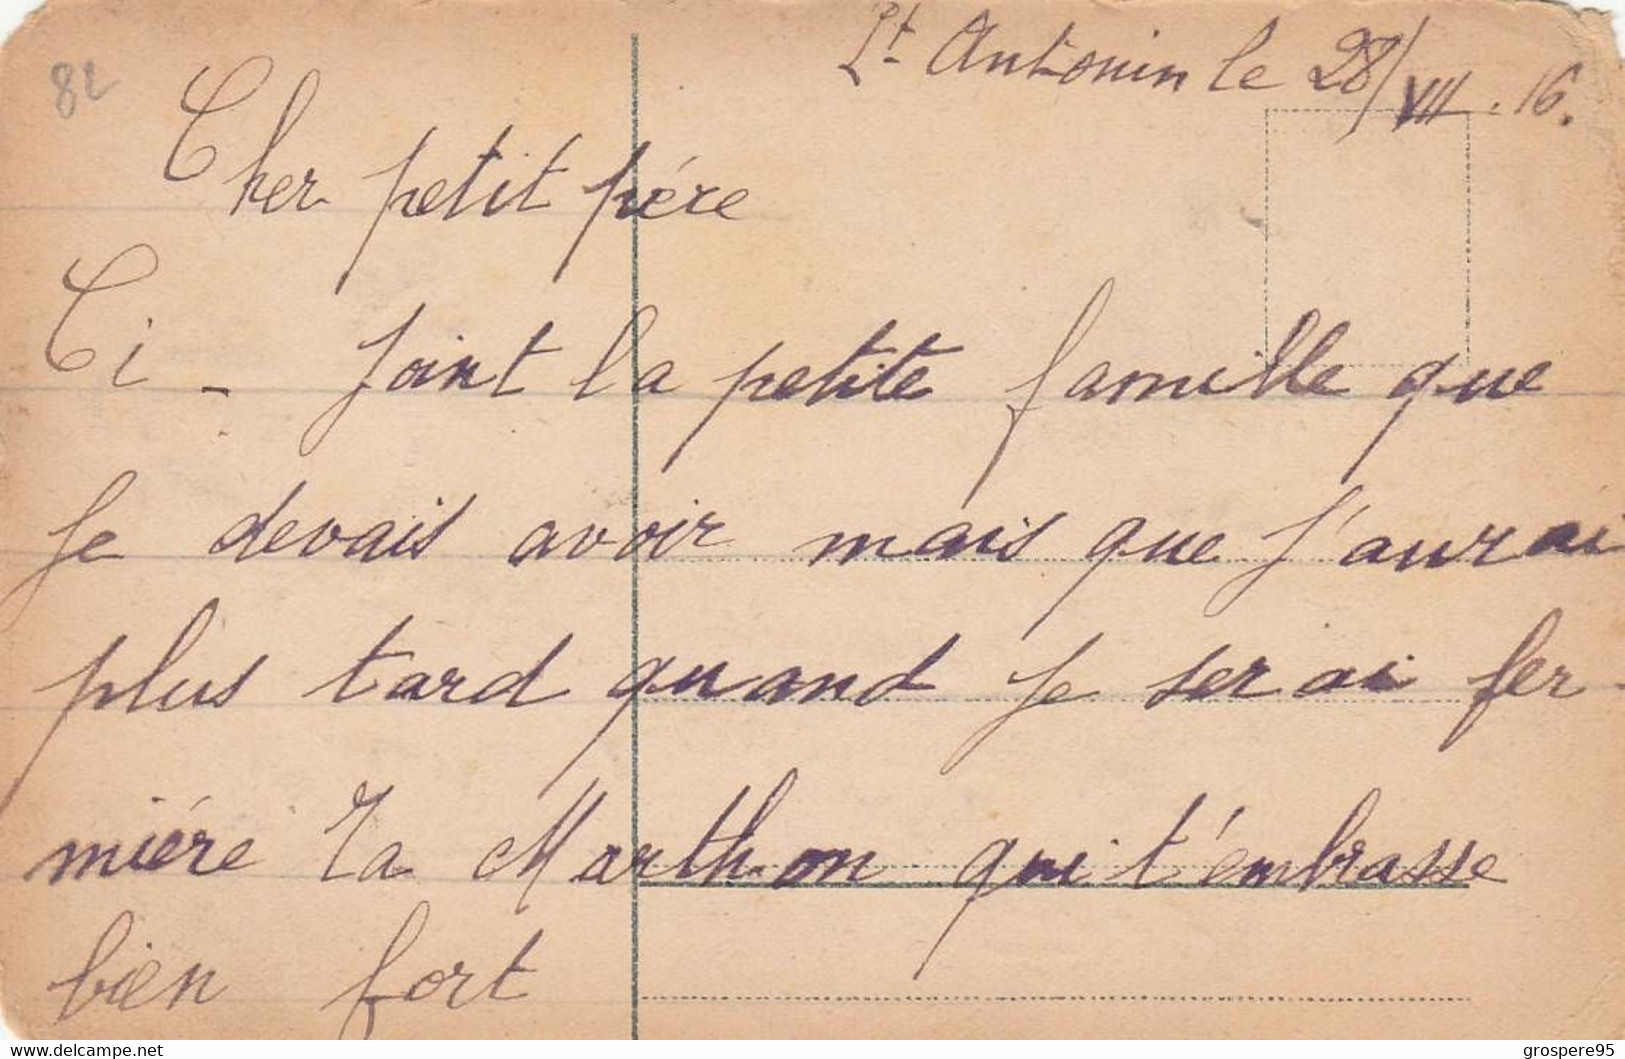 82
St Antonin le 28/VII.16.
Cher petit pére
Ci - Joint la petite famille que
Je devais avoir mais que J'aurai
plus tard quand Je serai fer-
miére Ta Marthon qui t'embrasse
bien fort
www.delcampe.net
grospere95